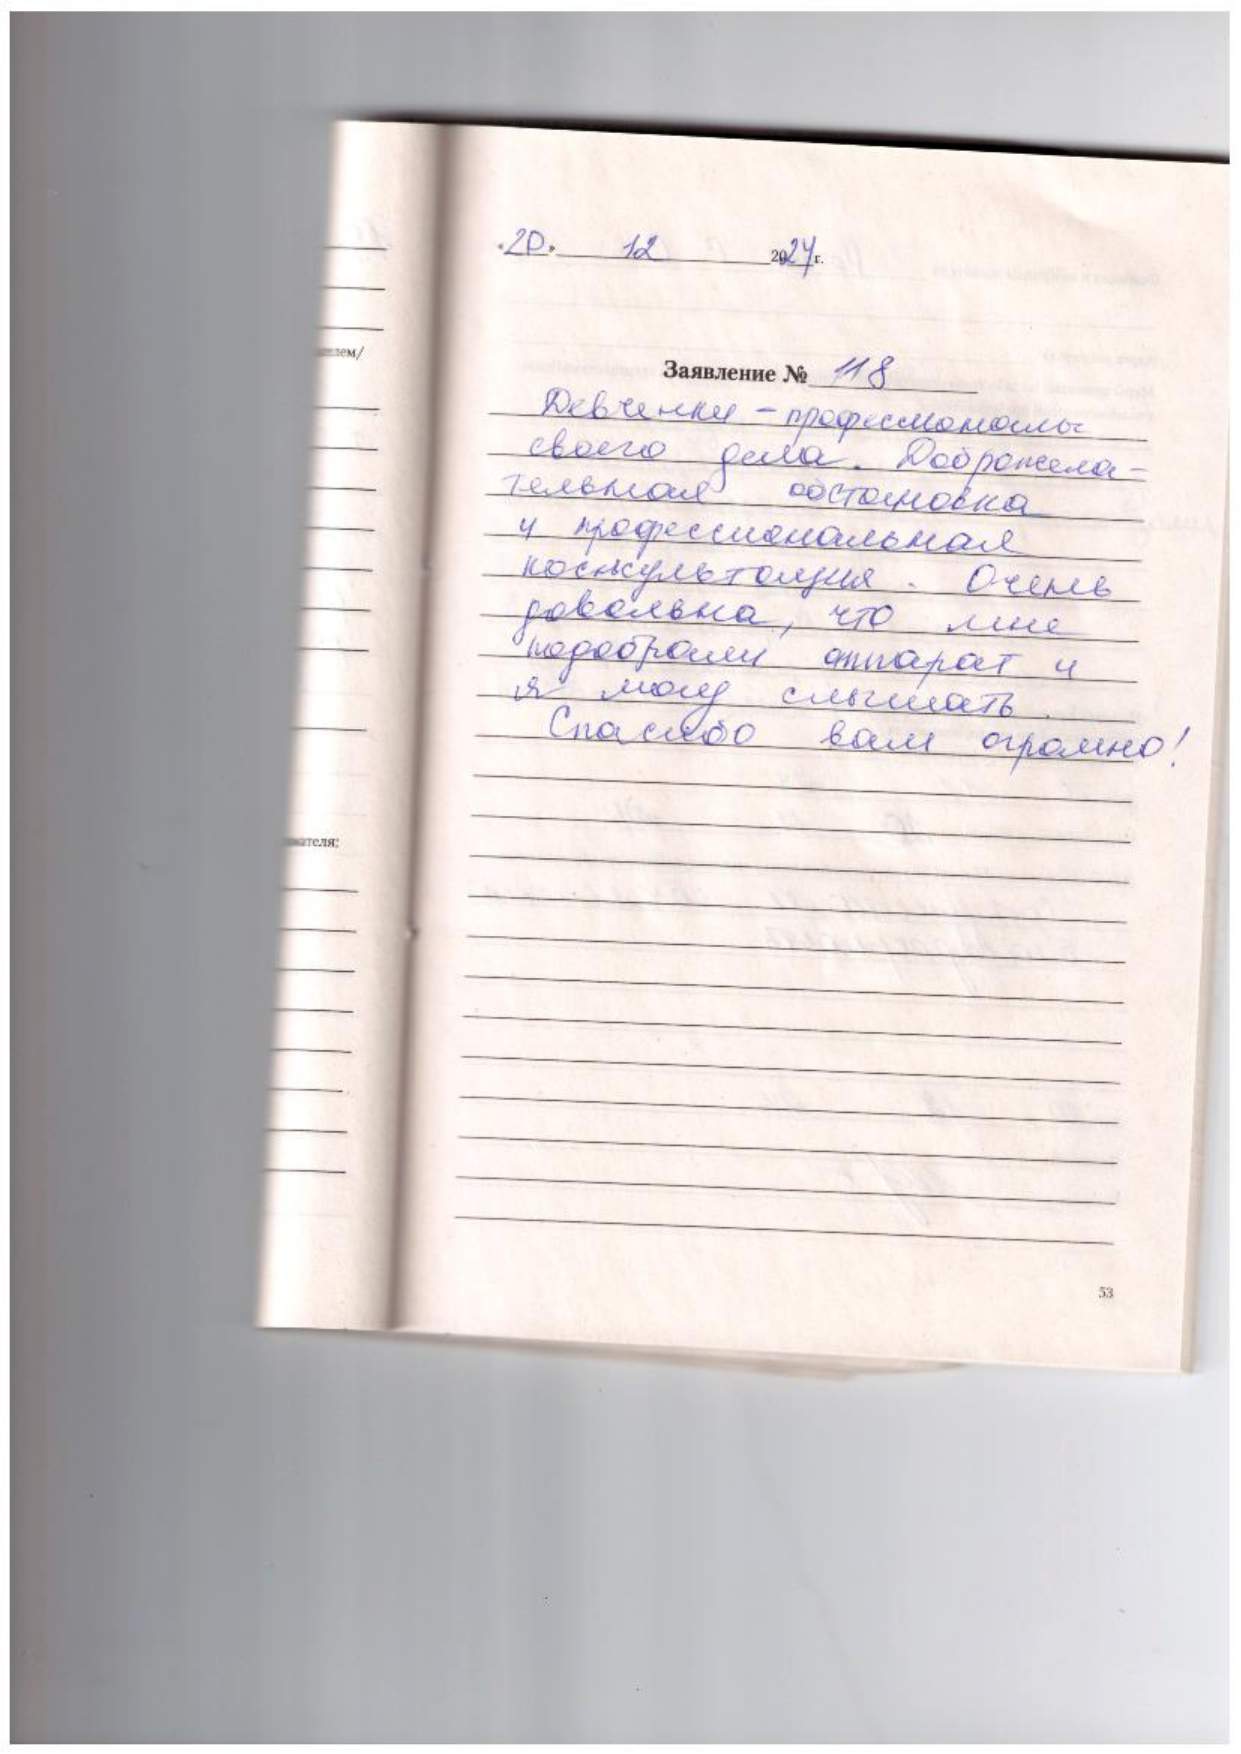 «20» 12 2024 г.
Заявление № 118
Девченки – професионалы
своего дела. Доброжела-
тельная обстановка
и професснональная
коснсультация. Очень
довольна, что мне
подобрали аппарат и
я могу слышать.
Спасибо вам огромно!
ателем/
вателя:
53